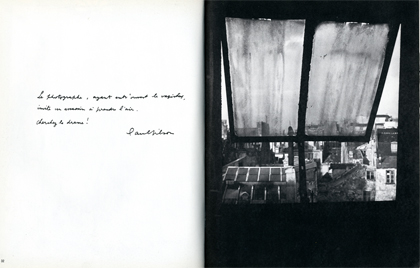 Le photographe, ayant entr'ouvert le vasistas,
invite un assassin à prendre l'air.
Cherchez le drame !
Paul Gilson